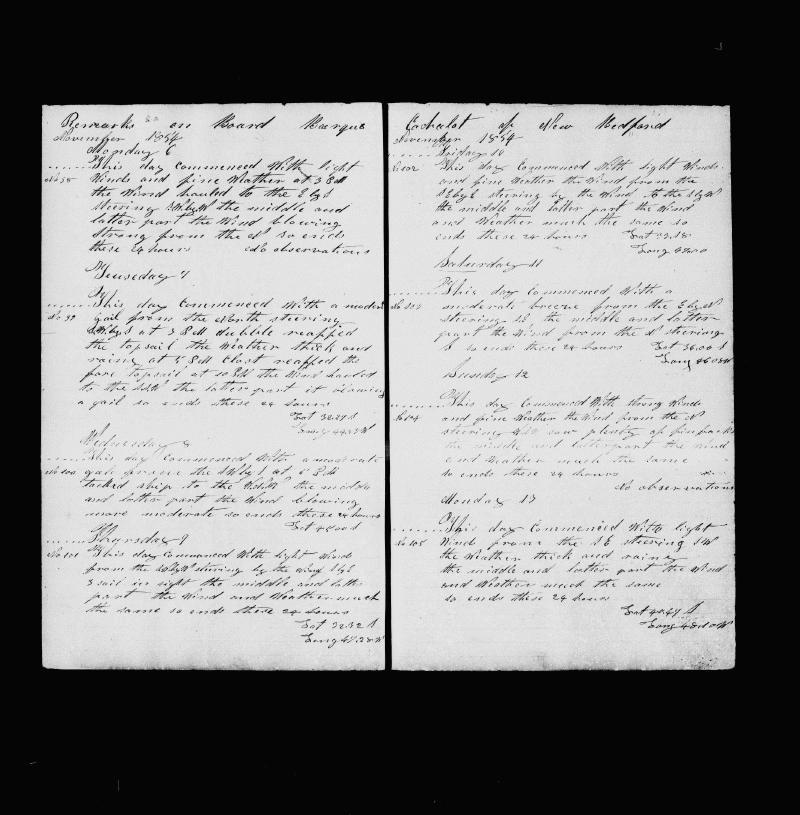 Remarks on Board Barque
November 1854
Monday 6
This day commenced With light
No 98 Winds and fine Weather at 3 PM
the Wind hauled to the E by S
steering the middle and
latter part the Wind blowing
strong from the so ends
these 24 hours No observations
Teuseday 7
This day Commenced With a moderate
No 99 gail from the North steering
at 3 PM dubble reapped
the topsail the Weather thick and
raine at PM Clost reapped the
fore topsail at 10 PM the Wind hauled
to the the latter part it blowing
a gail so ends these 24 hours
Lat S
Long W
Wednesday 8
This day Commenced With a moderate
No 100 gale frome the at PM
tacked ship to the the middle
and latter part the Wind blowing
more moderate so ends these 24 hours
Lat S
Thursday 9
No 101 This day Commenced With light Winds
from the steering by the Wind
3 sail in sight the middle and latter
part the Wind and Weather much
the same so ends these 24 hours
Lat 32.32 S
Long W
Cachalot of New Bedford
November 1854
Friday 10
No 102 This day Commenced With light Winds
and fine Weather the Wind from the
steering by the Wind to the
the middle and latter part the Wind
and Weather much the same so
ends these 24 hours Lat
Long
Saturday 11
This day Commenced With a
No 103 moderate breeze from the
steering the middle and latter
part the Wind from the steering
S so ends these 24 hours Lat 36.00 S
Long W
Sunday 12
This day Commenced With strong Winds
No 104 and fine Weather the Wind from the
steering saw plenty of fine backs
the middle and latter part the Wind
and Weather much the same
so ends these 24 hours
No observations
Monday 13
This day Commenced With light
No 105 Winds frome the SE steering SW
the Weather thick and raine
the middle and latter part the Wind
and Weather much the same
so ends these 24 hours
Lat 40.47 S
Long W